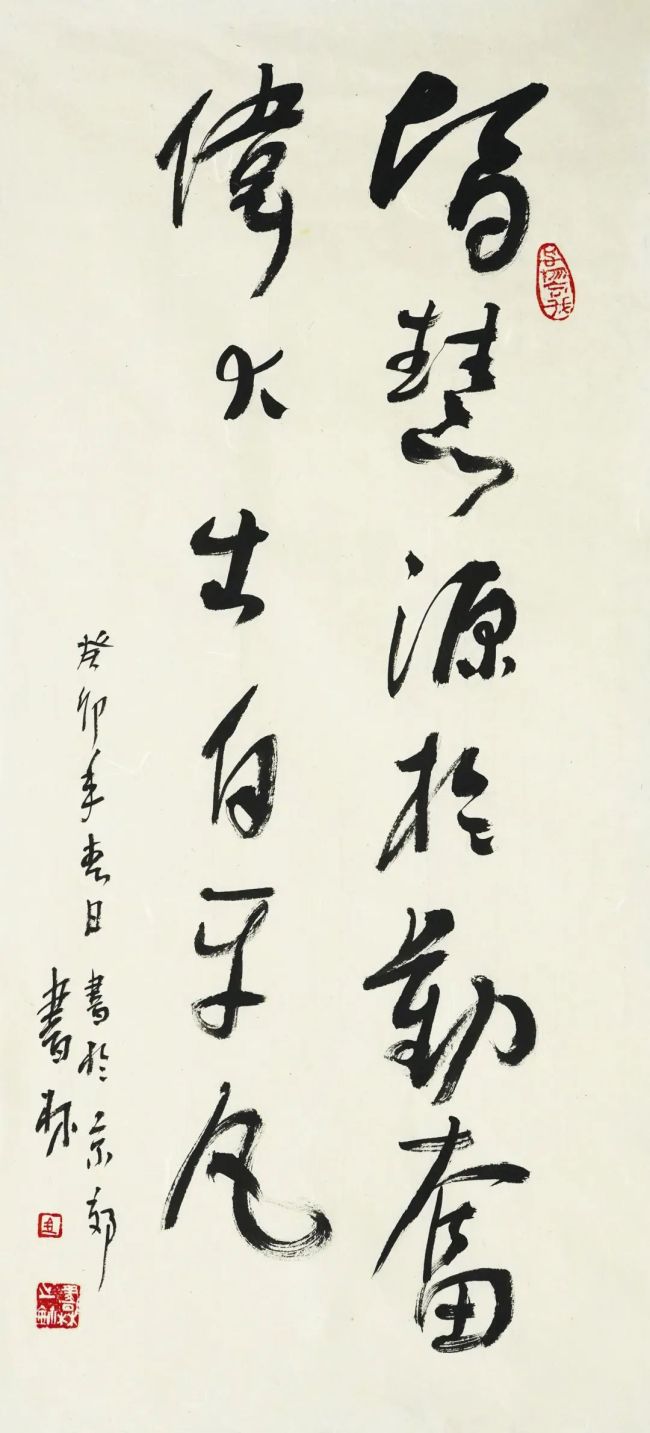 智慧源於勤奮
偉大出自平凡
癸卯年春日書於京郊
書林